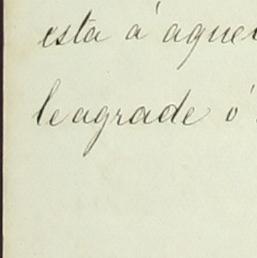 esta á aquel
leagrade ó